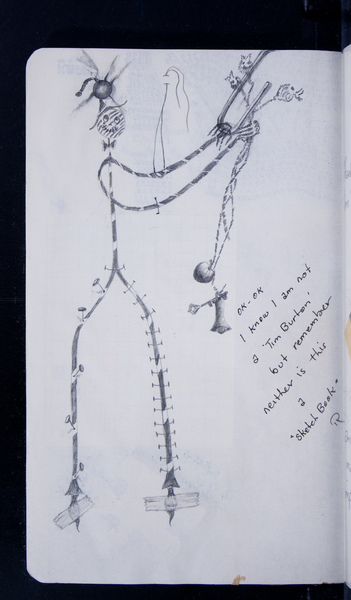 OK-OK
I know I am not
a 'Tim Burton'
but remember
neither is this
a
"Sketch Book"
R